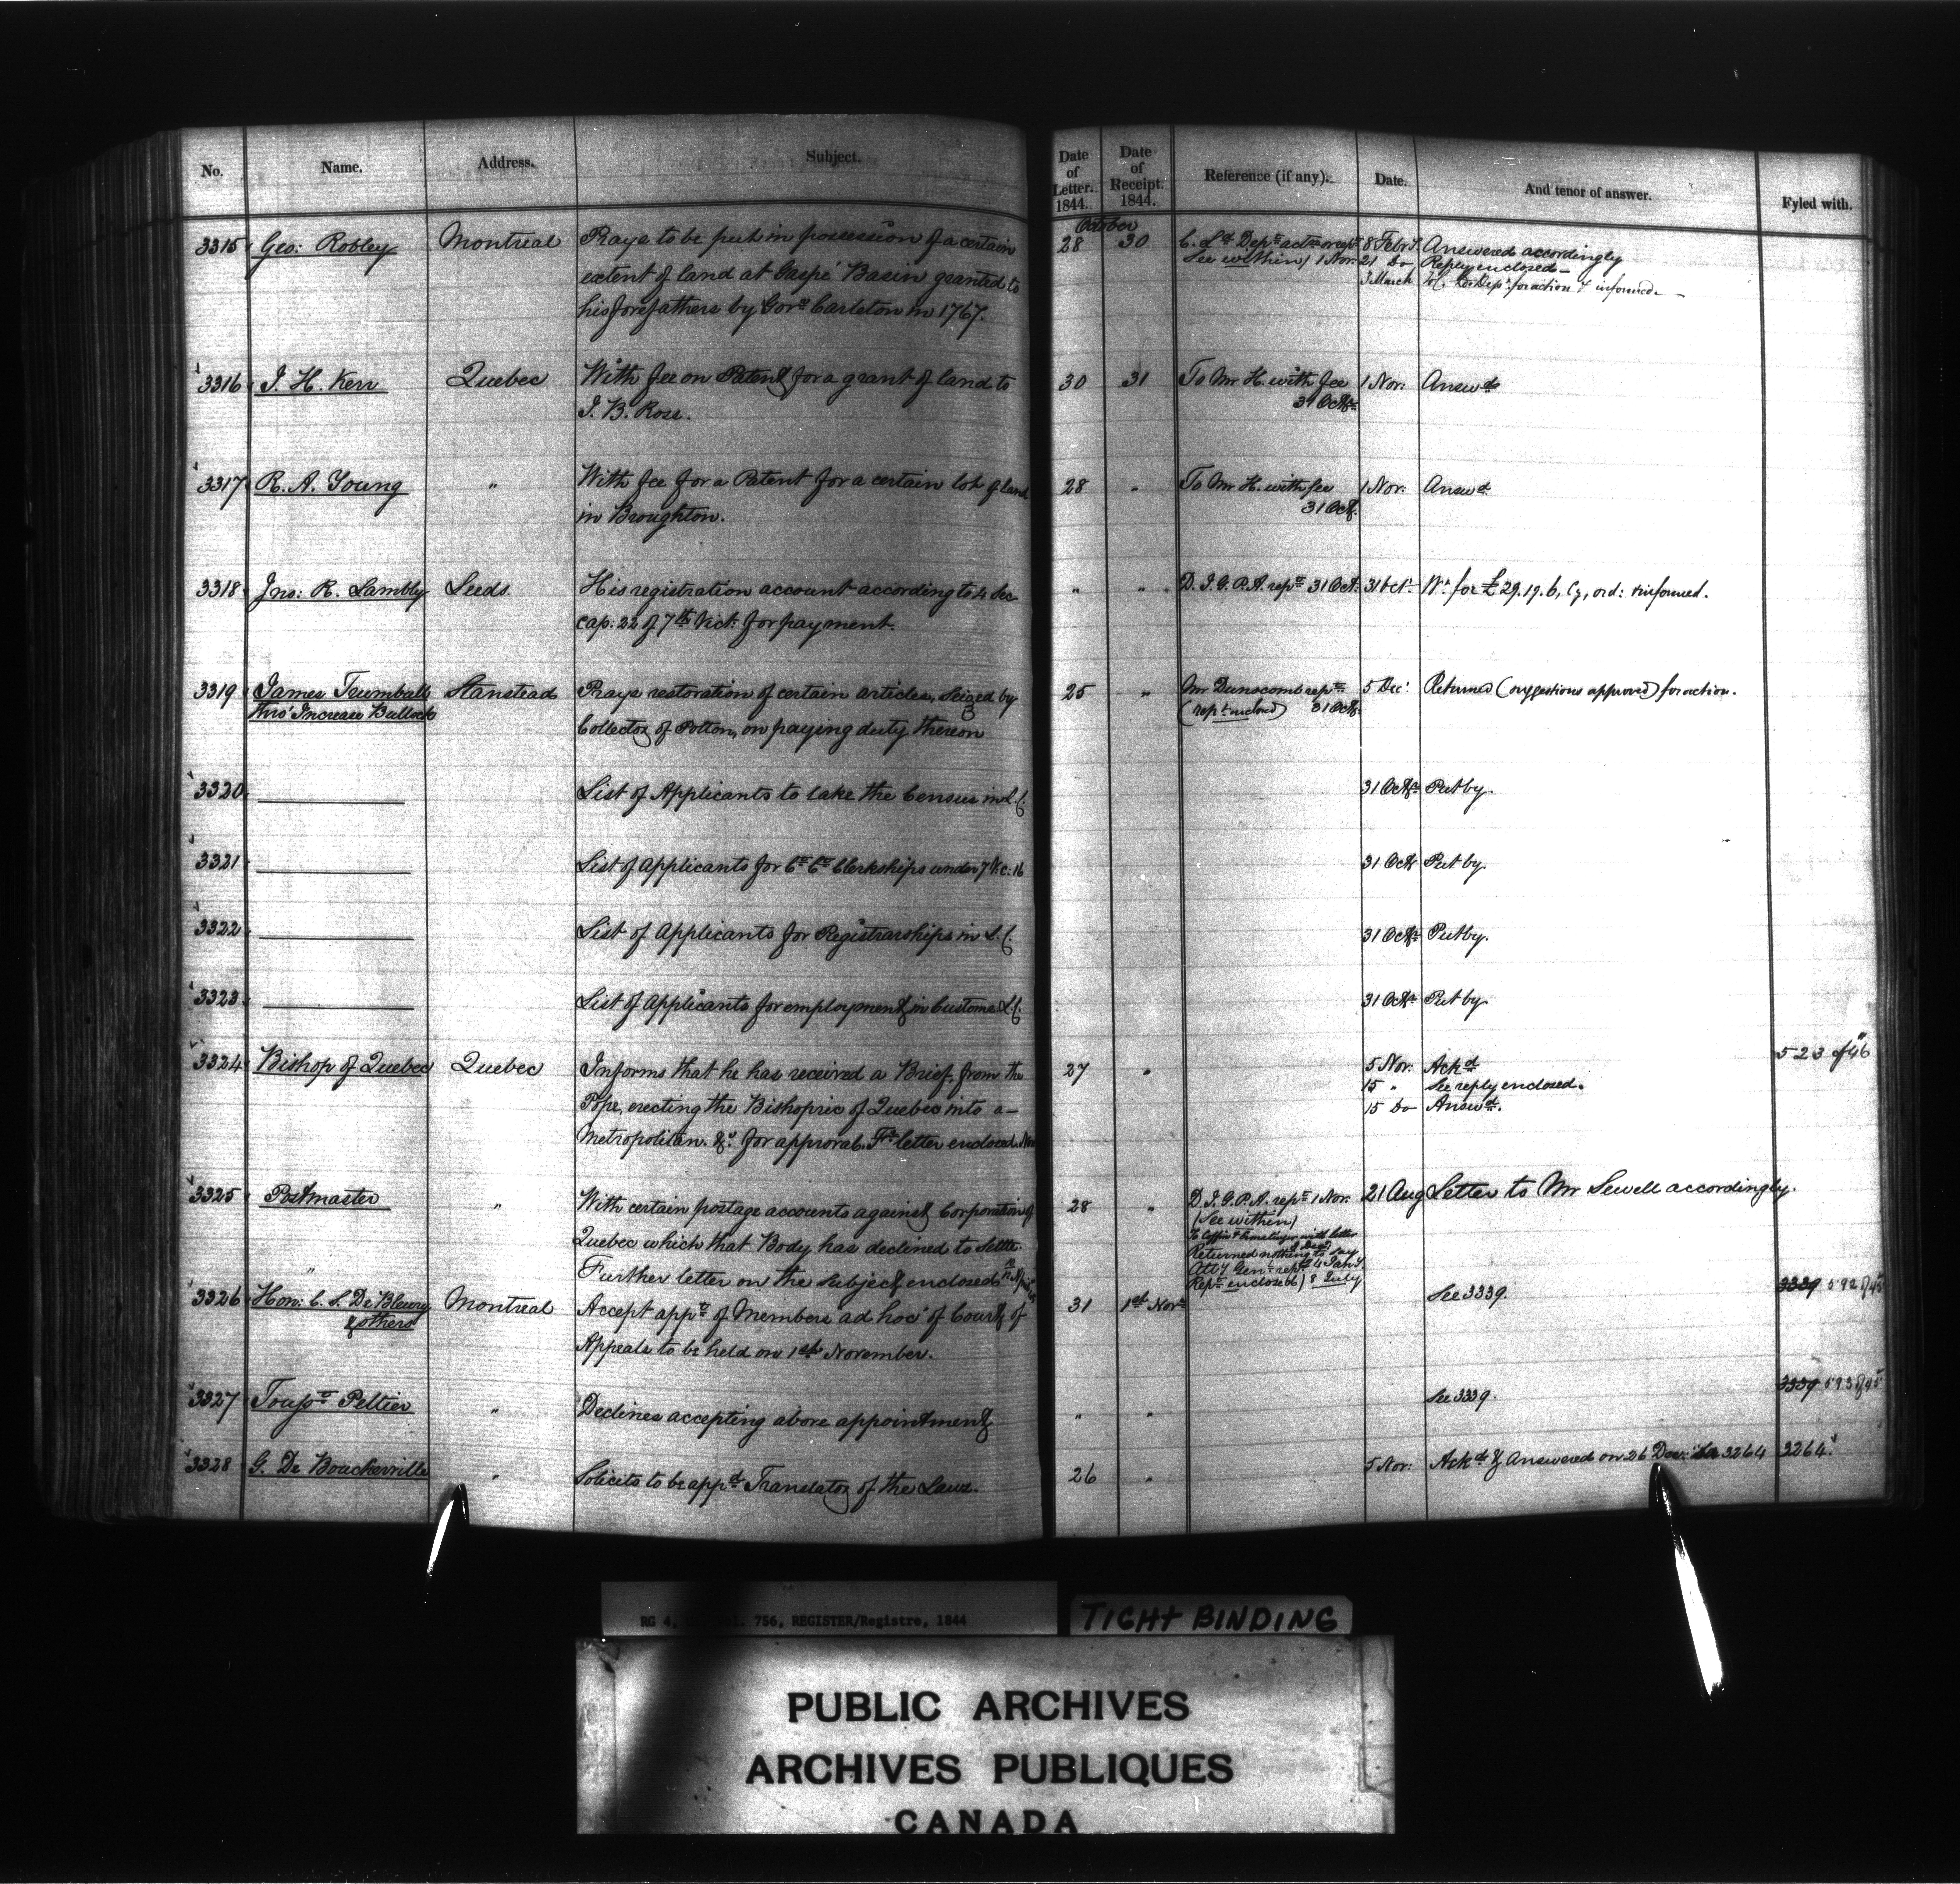 No. Name. Address. Subject. Date of Letter. 1844. Date of Receipt. 1844. Reference (if any). Date. And tenor of answer. Fyled with.
October
3315 Geo: Robley Montreal Prays to be put in possession of a certain 28 30 C. Ld. Dept. 8 Feby. Answered accordingly
extent of land at Gaspé Basin granted to See within) 1 Nov: 21 Do Reply enclosed
his forefathers by Govr. Carleton in 1767. 3 March for action & informed.
3316 J. H. Kerr Quebec With fee on Patent for a grant of land to 30 31 To Mr H. with fee 1 Nov: Answd.
J. B. Rose. 31 Octr.
3317 R. A. Young " With fee for a Patent for a certain lot of land 28 " To Mr H. with fee 1 Nov: Answd.
in Broughton. 31 Oct.
3318 Jno: R. Lambly Leeds. His registration account according to 4 Sec " " D. I. G. P. A. rept. 31 Oct. 31 Oct. Wt. for £29.19.6, Cy, ord: & informed.
cap: 22 of 7th Vict: for payment.
3319 James Trumball Stanstead Prays restoration of certain articles, seized by 25 " Mr Dunscomb rept. 5 Dec: Returned (suggestions approved) for action.
thro' Increase Bullock Collector of Potton, on paying duty thereon (rept. enclosed) 31 Oct.
3320 List of Applicants to take the Census in L.C. 31 Octr. Put by.
3321 List of Applicants for Ct. Ct. Clerkships under 7 V. c: 16 31 Oct Put by.
3322 List of Applicants for Registrarships in L.C. 31 Octr. Put by.
3323 List of Applicants for employment in Customs L.C. 31 Octr. Put by.
3324 Bishop of Quebec Quebec Informs that he has received a Brief from the 27 " 5 Nov: Ackd. 523 of 46
Pope, erecting the Bishopric of Quebec into a 15 " See reply enclosed.
Metropolitan. &c. for approval. Fr. letter enclosed. 15 Do Answd.
3325 Postmaster " With certain postage accounts against Corporation of 28 " D. I. G. P. A. rept. 1 Nov: 21 Aug Letter to Mr Sewell accordingly.
Quebec which that Body has declined to settle. (See within)
To Coffin & with letter
Returned nothing to say
" Further letter on the subject enclosed Atty Genl. rept. 4 Jany.
Rept. enclosed) 8 July
3326 Hon: C. S. De Bleury Montreal Accept appt. of Members ad hoc of Court of 31 1st Novr. See 3339. 3339 592 of 45
& others Appeals to be held on 1st November.
3327 Tousst. Peltier " Declines accepting above appointment " " See 3339. 3339 593 of 45
3328 G. De Boucherville " Solicits to be appd. Translator of the Laws. 26 " 5 Nov: Ackd. & Answered on 26 Dec: 3264 3264.
RG 4, 756, REGISTER/Registre, 1844
TIGHT BINDING
PUBLIC ARCHIVES
ARCHIVES PUBLIQUES
CANADA